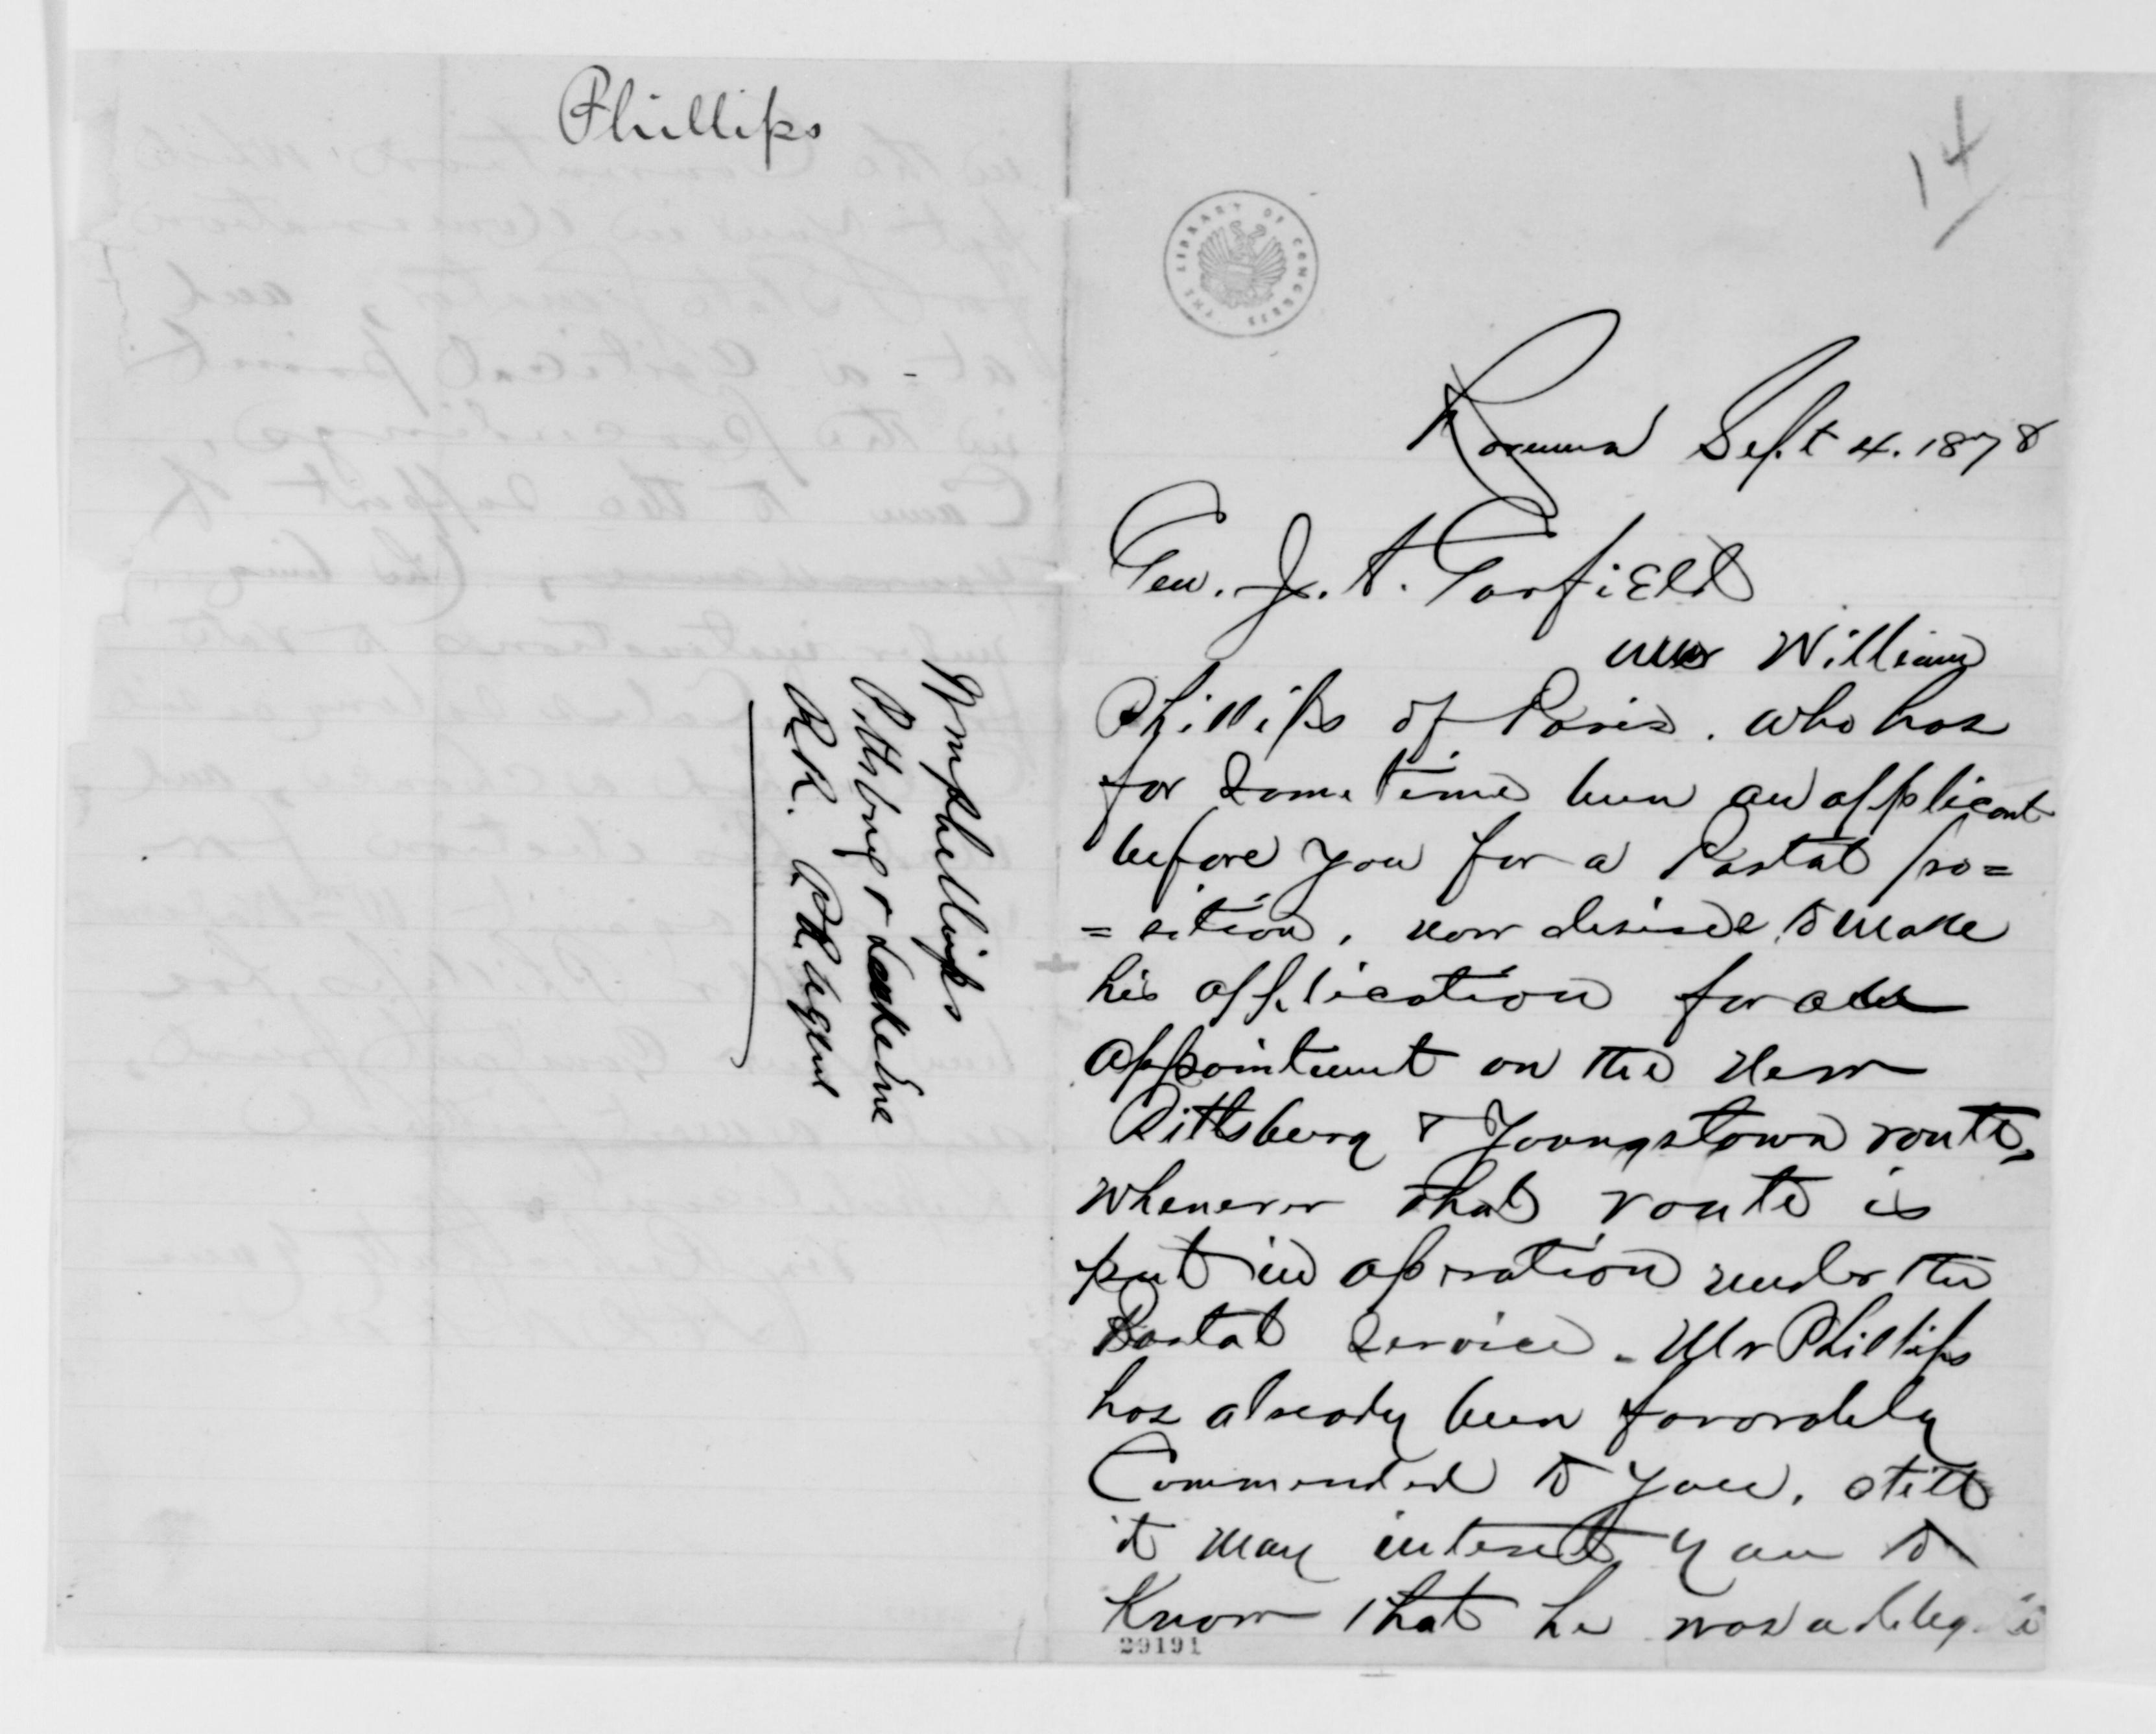 Phillips
14
THE LIBRARY OF CONGRESS
Ravenna Sept 4. 1878
Gen. J. A. Garfield
Mr William
Phillips of Paris. who has
for some time been an applicant
before you for a Postal po=
=sition, now desires to make
his application for an
appointment on the New
Pittsburg & Youngstown route,
whenever that route is
put in operation under the
Postal Service. Mr Phillips
has already been favorably
Commended to you, still
it may interest you to
Know that he was a delegate
29191
Wm Phillips
Pittsburg & Lake Erie
RR.